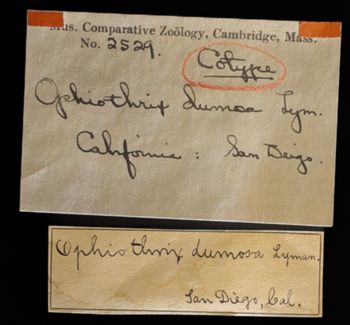 Mus. Comparative Zoölogy, Cambridge, Mass.
No. 2529.
Cotype
Ophiothrix dumosa Lym.
California: San Deigo.
Ophiothrix dumosa Lyman.
San Diego, Cal.